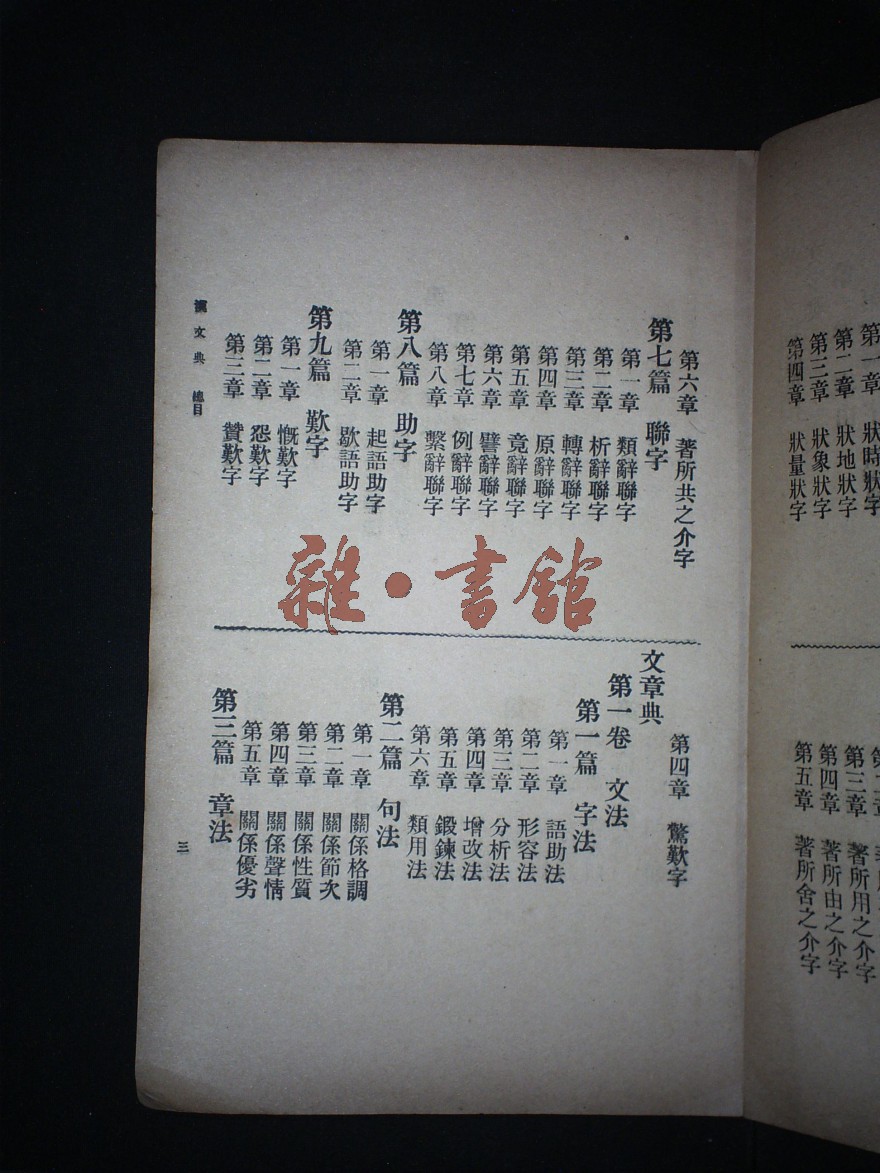 第一章 狀時狀字
第二章 狀地狀字
第三章 狀象狀字
第四章 狀量狀字
第三章 著所用之介字
第四章 著所由之介字
第五章 著所舍之介字
第六章 著所共之介字
第七篇 聯字
第一章 類辭聯字
第二章 析辭聯字
第三章 轉辭聯字
第四章 原辭聯字
第五章 竟辭聯字
第六章 譬辭聯字
第七章 例辭聯字
第八章 繫辭聯字
第八篇 助字
第一章 起語助字
第二章 歇語助字
第九篇 歎字
第一章 慨歎字
第二章 怨歎字
第三章 贊歎字
漢文典 總目
雜·書館
第四章 驚歎字
文章典
第一卷 文法
第一篇 字法
第一章 語助法
第二章 形容法
第三章 分析法
第四章 增改法
第五章 鍛鍊法
第六章 類用法
第二篇 句法
第一章 關係格調
第二章 關係節次
第三章 關係性質
第四章 關係聲情
第五章 關係優劣
第三篇 章法
三